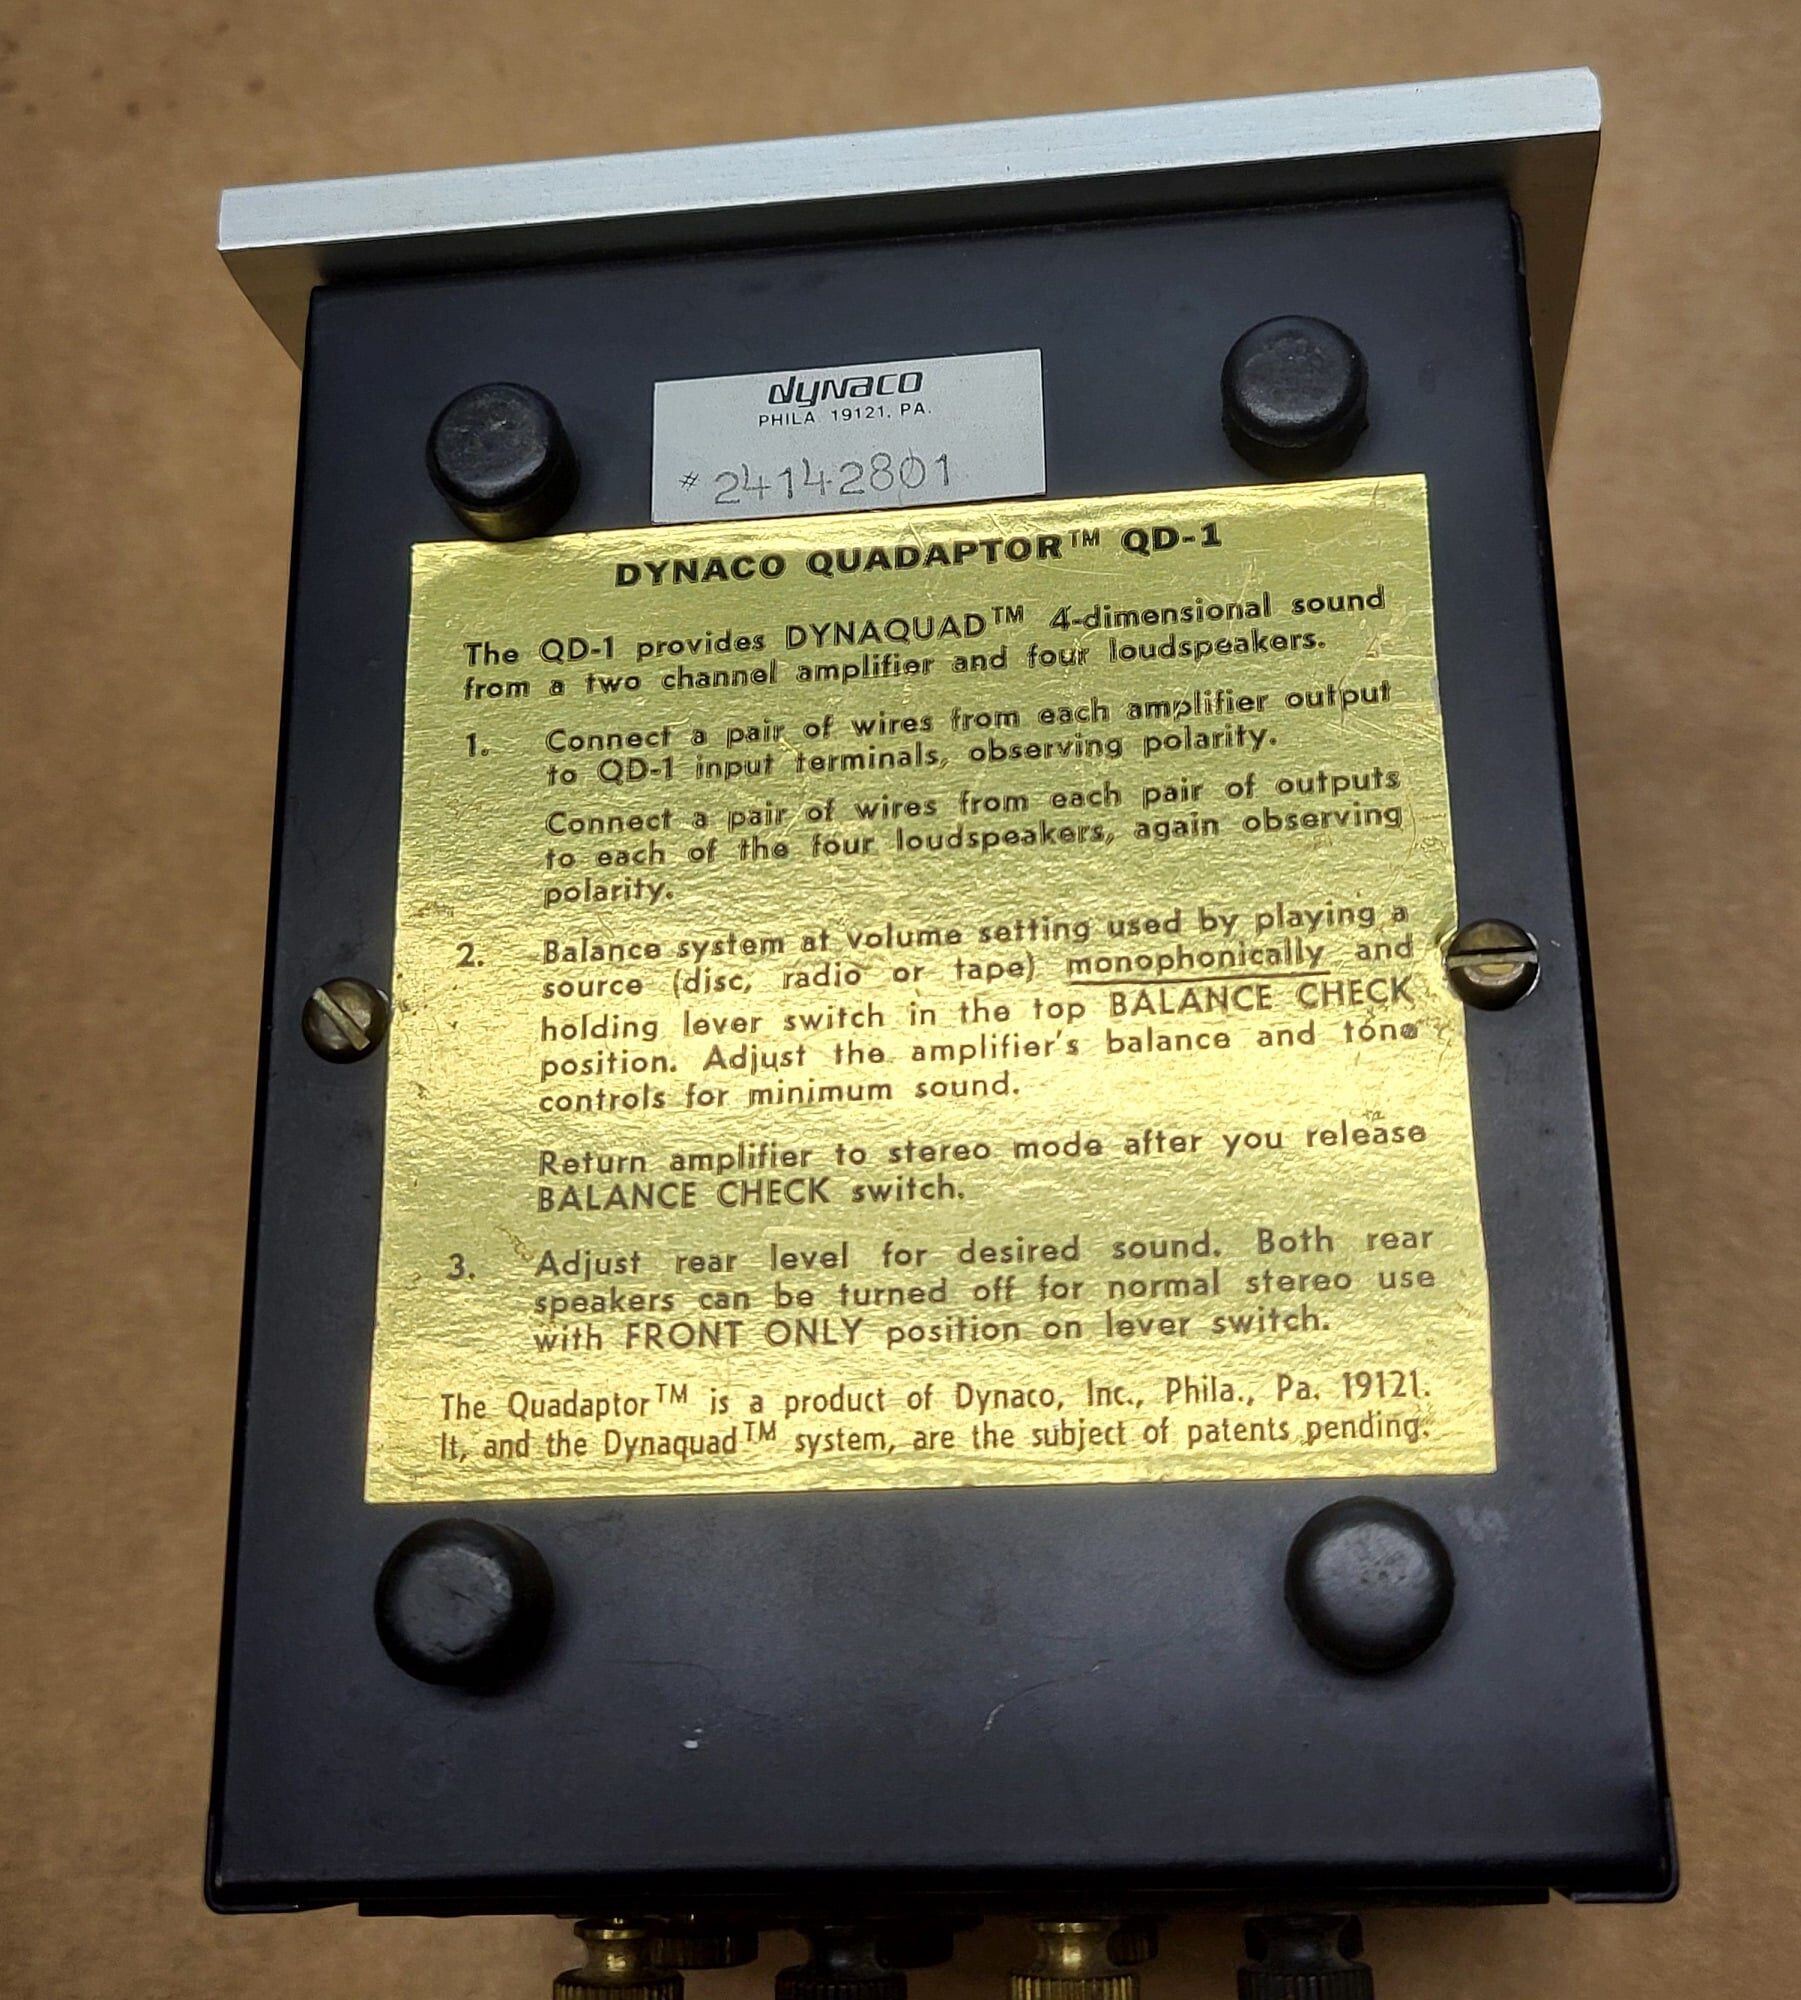 dynaco
PHILA 19121, PA.
# 24142801
DYNACO QUADAPTOR™ QD-1
The QD-1 provides DYNAQUAD™ 4-dimensional sound
from a two channel amplifier and four loudspeakers.
1. Connect a pair of wires from each amplifier output
to QD-1 input terminals, observing polarity.
Connect a pair of wires from each pair of outputs
to each of the four loudspeakers, again observing
polarity.
2. Balance system at volume setting used by playing a
source (disc, radio or tape) monophonically and
holding lever switch in the top BALANCE CHECK
position. Adjust the amplifier's balance and tone
controls for minimum sound.
Return amplifier to stereo mode after you release
BALANCE CHECK switch.
3. Adjust rear level for desired sound. Both rear
speakers can be turned off for normal stereo use
with FRONT ONLY position on lever switch.
The Quadaptor™ is a product of Dynaco, Inc., Phila., Pa. 19121.
It, and the Dynaquad™ system, are the subject of patents pending.